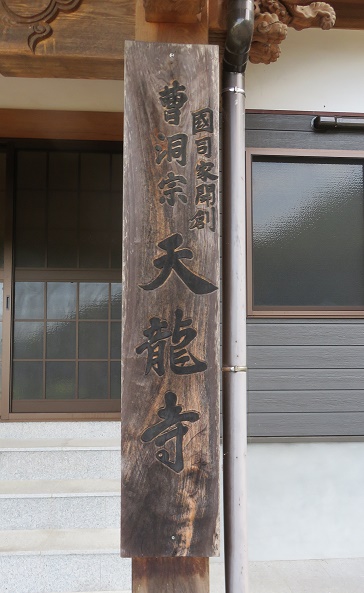 國司家開創
曹洞宗
天龍寺